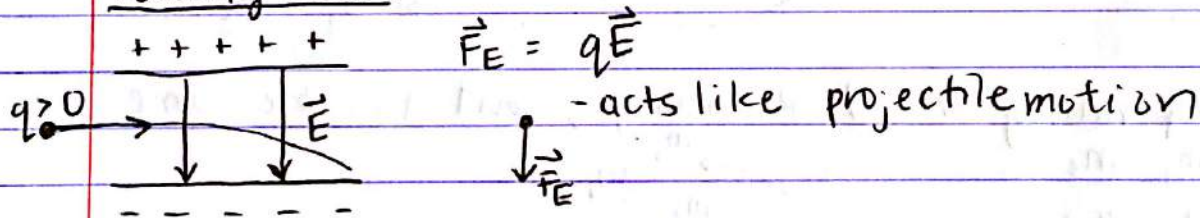 + + + + +
F⃗E = qE⃗
q>0
E⃗
- acts like projectile motion
F⃗E
- - - - -